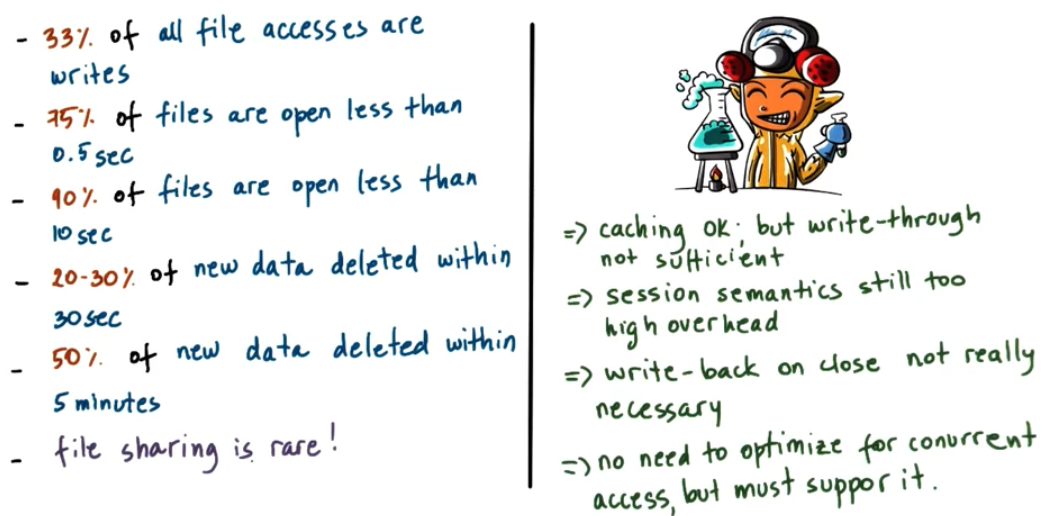 - 33% of all file accesses are
writes
- 75% of files are open less than
0.5 sec
- 90% of files are open less than
10 sec
- 20-30% of new data deleted within
30 sec
- 50% of new data deleted within
5 minutes
- file sharing is rare!
=> caching OK; but write-through
not sufficient
=> session semantics still too
high overhead
=> write-back on close not really
necessary
=> no need to optimize for conurrent
access, but must suppor it.